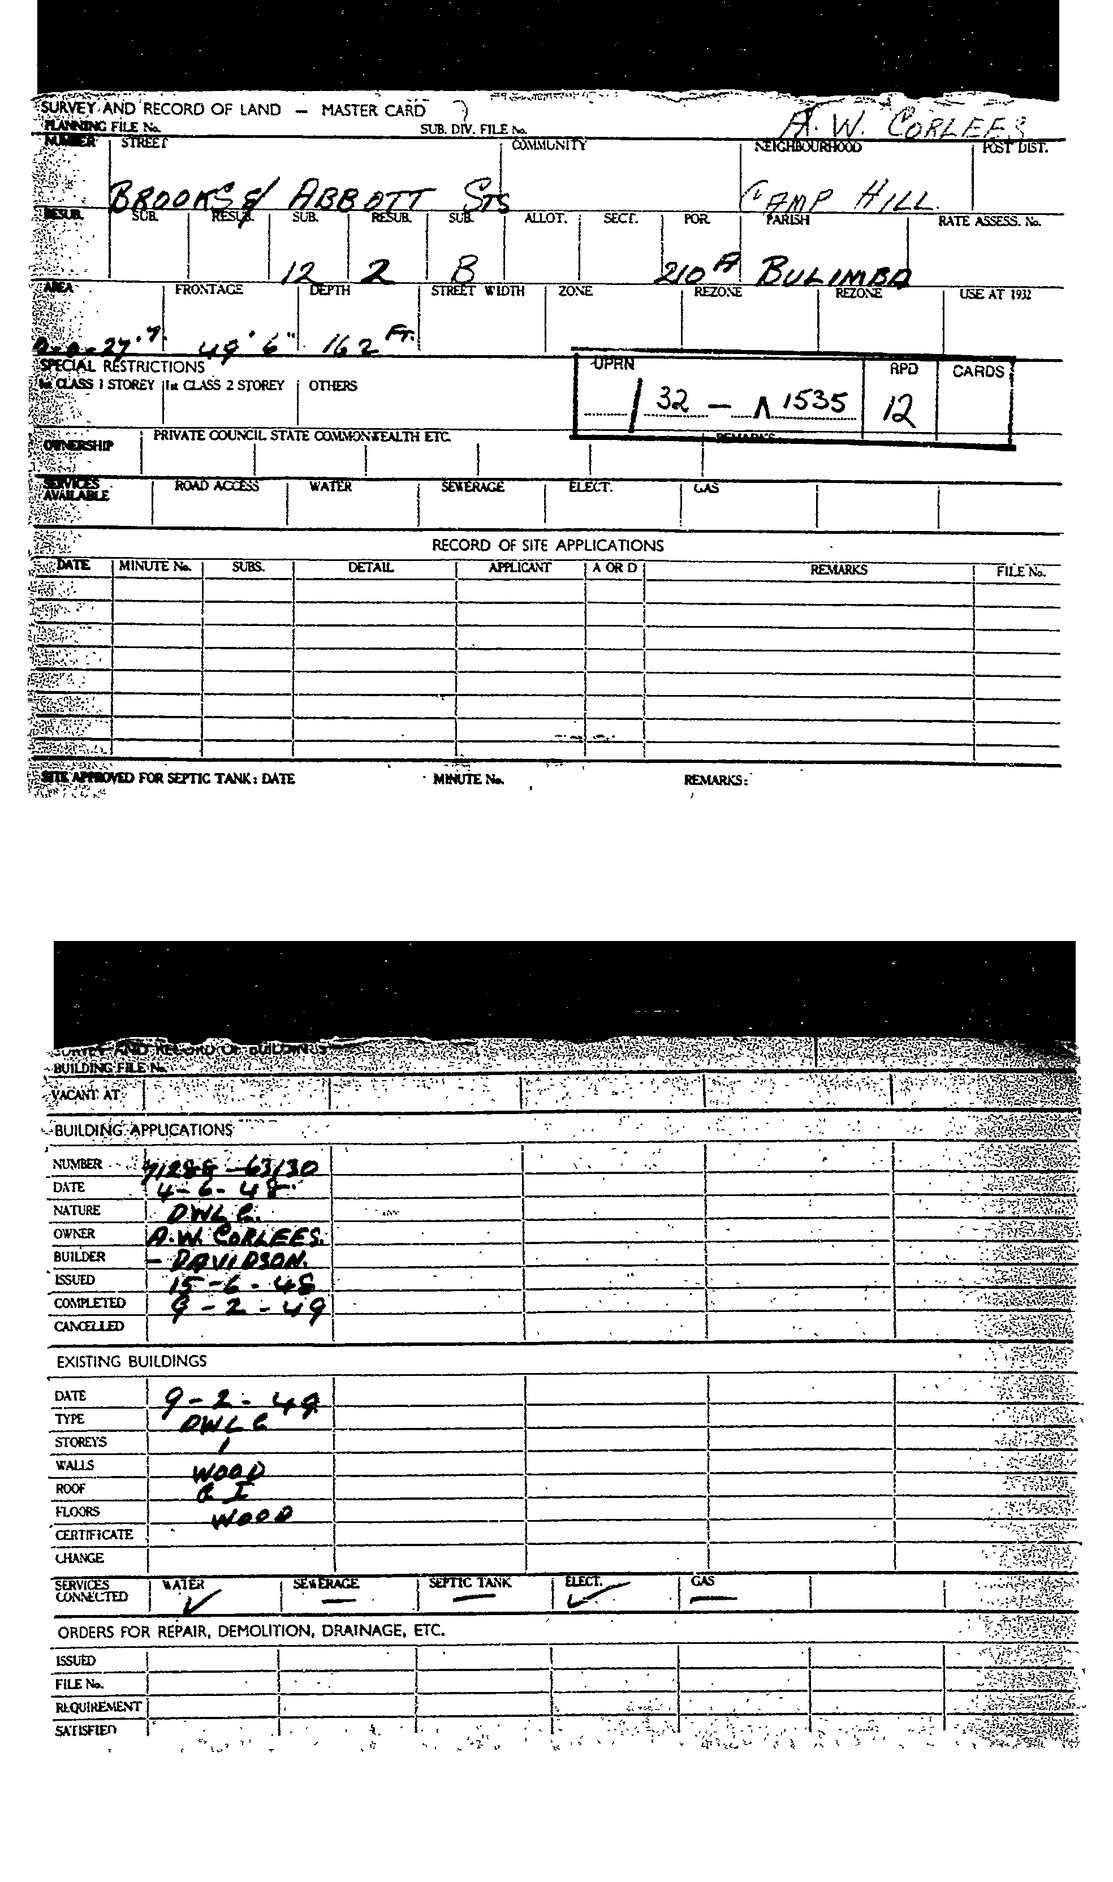 SURVEY AND RECORD OF LAND — MASTER CARD
A. W. CORLEES
PLANNING FILE No. SUB. DIV. FILE No.
NUMBER STREET COMMUNITY NEIGHBOURHOOD POST DIST.
BROOKS & ABBOTT STS CAMP HILL
RESUB. SUB. RESUB. SUB. RESUB. SUB. ALLOT. SECT. POR. PARISH RATE ASSESS. No.
12 2 B 210 A BULIMBA
AREA FRONTAGE DEPTH STREET WIDTH ZONE REZONE REZONE USE AT 1932
0-0-29.7. 49' 6" 162 FT.
SPECIAL RESTRICTIONS UPRN RPD CARDS
1st CLASS 1 STOREY 1st CLASS 2 STOREY OTHERS
/ 32 — Λ 1535 12
OWNERSHIP PRIVATE COUNCIL STATE COMMONWEALTH ETC. REMARKS
SERVICES AVAILABLE ROAD ACCESS WATER SEWERAGE ELECT. GAS
RECORD OF SITE APPLICATIONS
DATE MINUTE No. SUBS. DETAIL APPLICANT A OR D REMARKS FILE No.
SITE APPROVED FOR SEPTIC TANK: DATE MINUTE No. REMARKS:
SURVEY AND RECORD OF BUILDINGS
BUILDING FILE No.
VACANT AT
BUILDING APPLICATIONS
NUMBER 71288-63/30
DATE 4-6-48
NATURE DWLG.
OWNER A.W. CORLEES.
BUILDER — DAVIDSON.
ISSUED 15-6-48
COMPLETED 9-2-49
CANCELLED
EXISTING BUILDINGS
DATE 9-2-49
TYPE DWLG
STOREYS 1
WALLS WOOD
ROOF G I
FLOORS WOOD
CERTIFICATE
CHANGE
SERVICES CONNECTED WATER ✓ SEWERAGE — SEPTIC TANK — ELECT. ✓ GAS —
ORDERS FOR REPAIR, DEMOLITION, DRAINAGE, ETC.
ISSUED
FILE No.
REQUIREMENT
SATISFIED